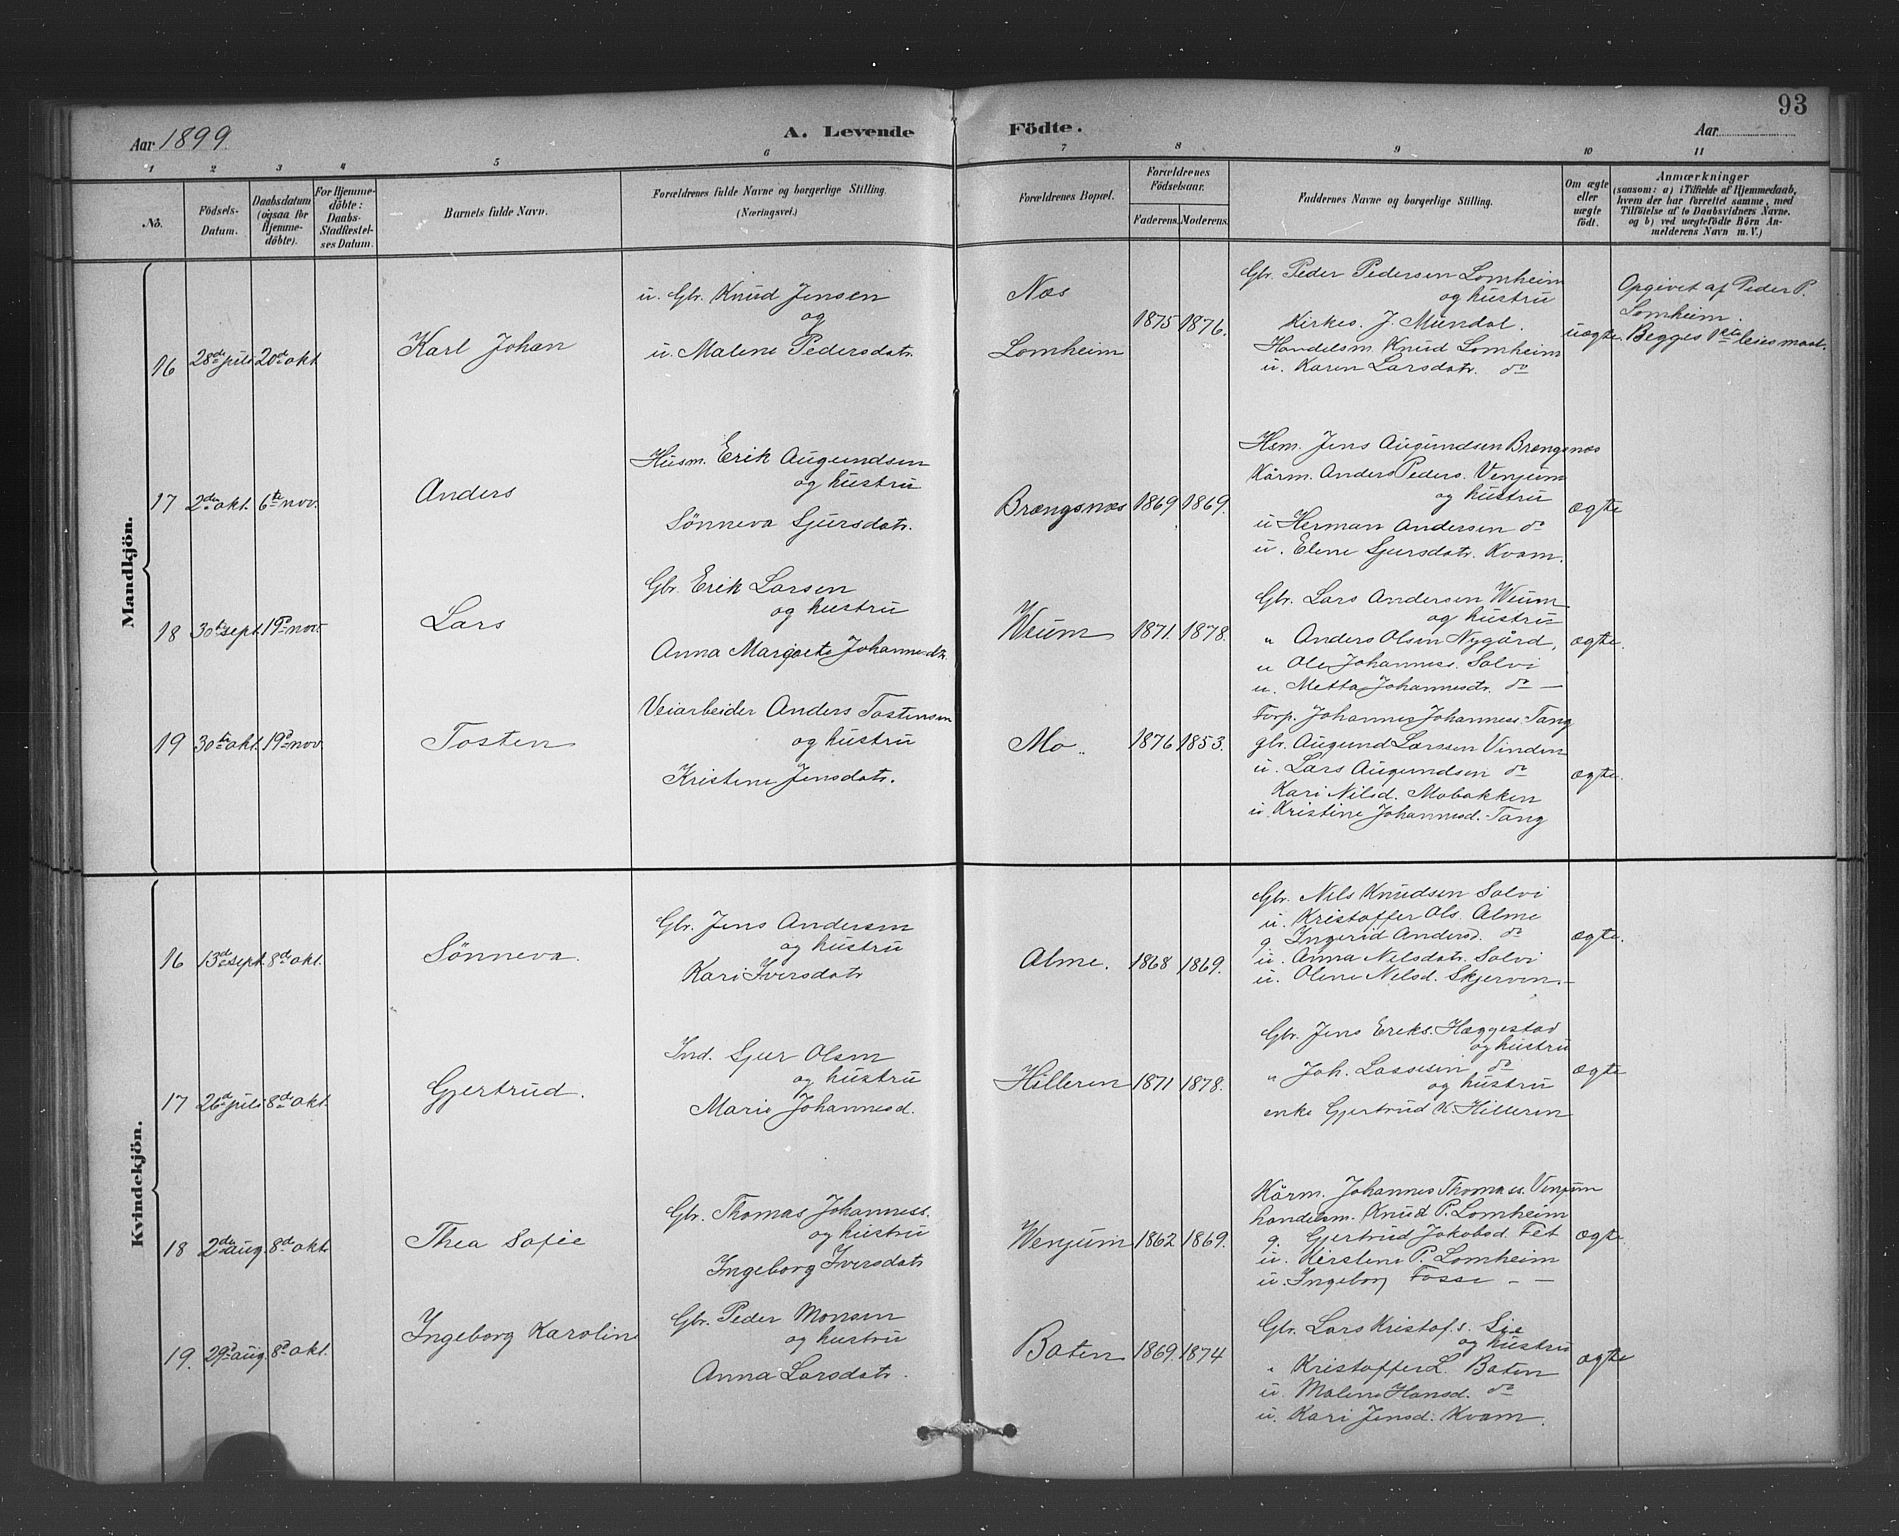 93
Aar 1899.
A. Levende Födte.
Aar
1 2 3 4 5 6 7 8 9 10 11
No.
Födsels-Datum.
Daabsdatum (ogsaa for Hjemme-döbte).
For Hjemme-döbte: Daabs-Stadfæstel-ses Datum.
Barnets fulde Navn.
Forældrenes fulde Navne og borgerlige Stilling. (Næringsvei.)
Forældrenes Bopæl.
Forældrenes Födselsaar.
Faderens. Moderens.
Faddernes Navne og borgerlige Stilling.
Om ægte eller uægte födt.
Anmærkninger
(saasom: a) i Tilfælde af Hjemmedaab, hvem der har forrettet samme, med Tilföielse af to Daabsvidners Navne. og b) ved uægtefödte Börn An-melderens Navn m. V.)
Mandkjön.
16 28de juli 20de okt.
Karl Johan
u. Gbr. Knud Jensen
og
u. Malene Pedersdatr.
Næs
Lomheim
1875 1876.
Gbr. Peder Pedersen Lomheim
og hustru
Kirkes. J. Mundal.
Handelsm. Knud Lomheim
u. Karen Larsdatr. do
uægte.
Opgivet af Peder P.
Lomheim.
Begges 1ste leiesmaal.
17 2den okt. 6te nov.
Anders
Husm. Erik Augundsen
og hustru
Sønneva Sjursdatr.
Brængsnæs
1869 1869.
Hem. Jens Augundsen Brængsnæs
Kårm. Anders Peders. Venjum
og hustru
u Herman Andersen do
u. Elene Sjursdatr. Kvam.
ægte
18 30te sept. 19de nov.
Lars
Gbr. Erik Larsen
og hustru
Anna Margrete Johannesdtr.
Weum
1871. 1878.
Gbr. Lars Andersen Weum
og hustru
" Anders Olsen Nygård,
u Ole Johanness. Salvi
u. Metta Johannesdtr. do —
ægte.
19 30te okt. 19de nov.
Tosten
Veiarbeider Anders Tostensen
og hustru
Kristene Jensdatr.
Mo.
1876 1853.
Forp. Johannes Johanness. Tang
gbr. Augund Larssen Vinden
u. Lars Augundsen do
Kari Nilsd. Mobakken
u. Kristine Johannesd. Tang
ægte.
Kvindekjön.
16 13de sept. 8de okt.
Sønneva.
Gbr. Jens Andersen
og hustru
Kari Iversdatr.
Alme.
1868 1869.
Gbr. Nils Knudsen Salvi
u. Kristoffer Ols. Alme
g. Ingerid Andersd. do
u. Anna Nilsdatr. Salvi
u. Oline Nilsd. Skjerven.
ægte.
17 26de juli 8de okt.
Gjertrud.
Ind. Sjur Olsen
og hustru
Marie Johannesd.
Hilleren
1871 1878.
Gbr. Jens Eriks. Hæggestad
og hustru
" Joh. Lassesen do
og hustru
enke Gjertrud K. Hilleren
ægte
18 2den aug. 8de okt.
Thea Sofie
Gbr. Thomas Johanness.
og hustru
Ingeborg Iversdatr.
Wenjum
1862 1869.
Kårm. Johannes Thomass. Venjum
handelsm. Knud P. Lomheim
g. Gjertrud Jakobsd. Fet
u. Kirstene P. Lomheim
u. Ingeborg Fosse — —
ægte
19. 29de aug. 8de okt.
Ingeborg Karoline
Gbr. Peder Monsen
og hustru
Anna Larsdatr.
Baten
1869. 1874
Gbr. Lars Kristofs. Lie
og hustru
" Kristoffer L. Baten
u. Malene Hansd. do
u. Kari Jensd. Kvam.
ægte